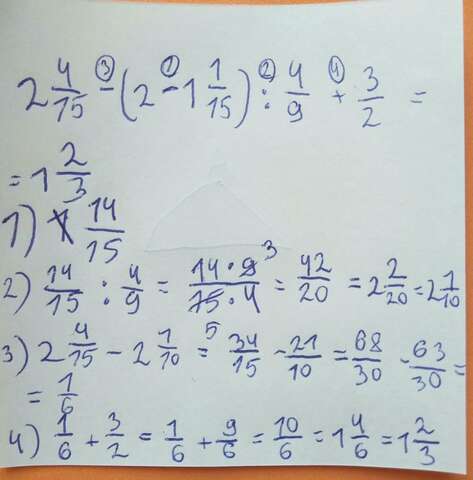 2 4/15 ③ − (2 ① − 1 1/15) ② : 4/9 ④ + 3/2 =
= 1 2/3
1) 14/15
2) 14/15 : 4/9 = 14 · 9 3 / 15 · 4 5 = 42/20 = 2 2/20 = 2 1/10
3) 2 4/15 − 2 1/10 = 34/15 − 21/10 = 68/30 − 63/30 =
= 1/6
4) 1/6 + 3/2 = 1/6 + 9/6 = 10/6 = 1 4/6 = 1 2/3